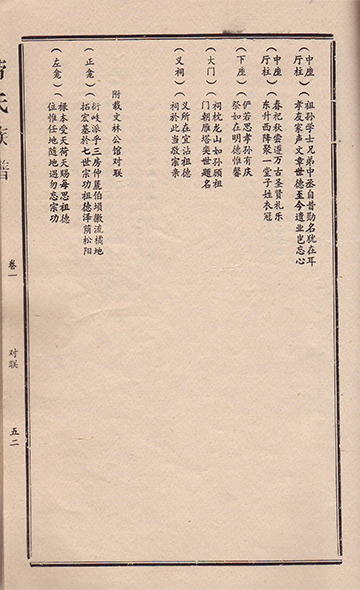 (中座厅柱)
祖孙学士兄弟中丞自昔勋名犹在耳
孝友家声文章世德至今遗业岂忘心
(中座厅柱)
春祀秋尝遵万古圣贤礼乐
东升西降聚一堂子姓衣冠
(下座)
俨若思孝孙有庆
祭如在明德惟馨
(大门)
祠枕龙山如孙顾祖
门朝雁塔奕世题名
(义祠)
义所在宜沾祖德
祠於此当敬宗亲
附载文林公馆对联
(正龛)
衍岐派乎三房仲篪伯埙徽流橘地
拓宏基於七世宗功祖德泽荫松阳
(左龛)
禄本受天荷天赐每思祖德
位惟任地随地遇勿忘宗功
氏族谱
卷一
对联
五二